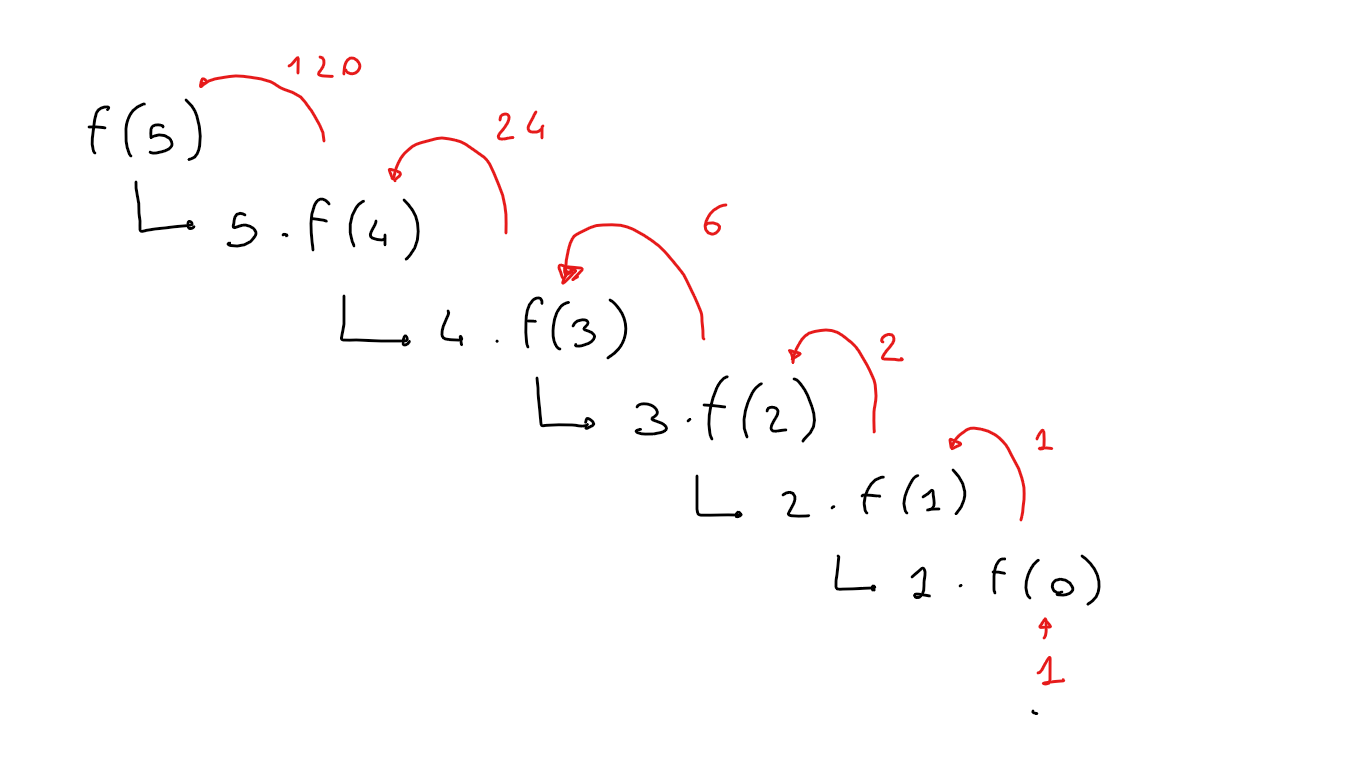 120
f(5)
24
5 . f(4)
6
4 . f(3)
2
3 . f(2)
1
2 . f(1)
1 . f(0)
1